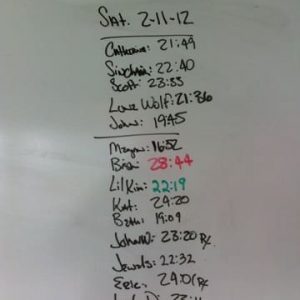 Sat. 2-11-12
Catherine: 21:49
Sinclair: 22:40
Scott: 23:55
Lone Wolf: 21:36
John: 19:45
Megan: 16:52
Brea: 28:44
Lil Kim: 22:19
Kat: 29:20
Beth: 19:09
John D: 23:20 Rx
Jewels: 22:32
Eric: 24:01 Rx